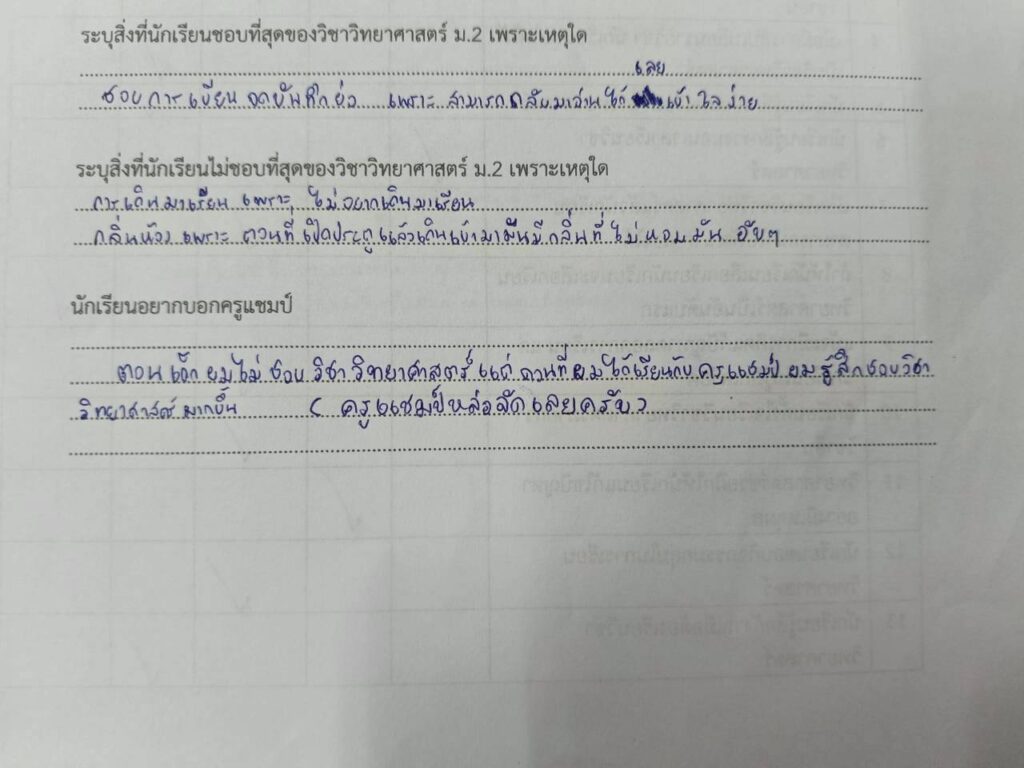 ระบุสิ่งที่นักเรียนชอบที่สุดของวิชาวิทยาศาสตร์ ม.2 เพราะเหตุใด
ชอบการเขียน จดบันทึกย่อ เพราะ สามารถกลับมาอ่านได้เลย เข้าใจง่าย
ระบุสิ่งที่นักเรียนไม่ชอบที่สุดของวิชาวิทยาศาสตร์ ม.2 เพราะเหตุใด
การเดินมาเรียน เพราะ ไม่อยากเดินมาเรียน
กลิ่นห้อง เพราะ ตอนที่เปิดประตูแล้วเดินเข้ามามันมีกลิ่นที่ไม่หอมมัน อับๆ
นักเรียนอยากบอกครูแชมป์
ตอนเด็กผมไม่ชอบวิชาวิทยาศาสตร์ แต่ ตอนที่ผมได้เรียนกับครูแชมป์ ผมรู้สึกชอบวิชา
วิทยาศาสตร์มากขึ้น ( ครูแชมป์หล่อจัดเลยครับ )